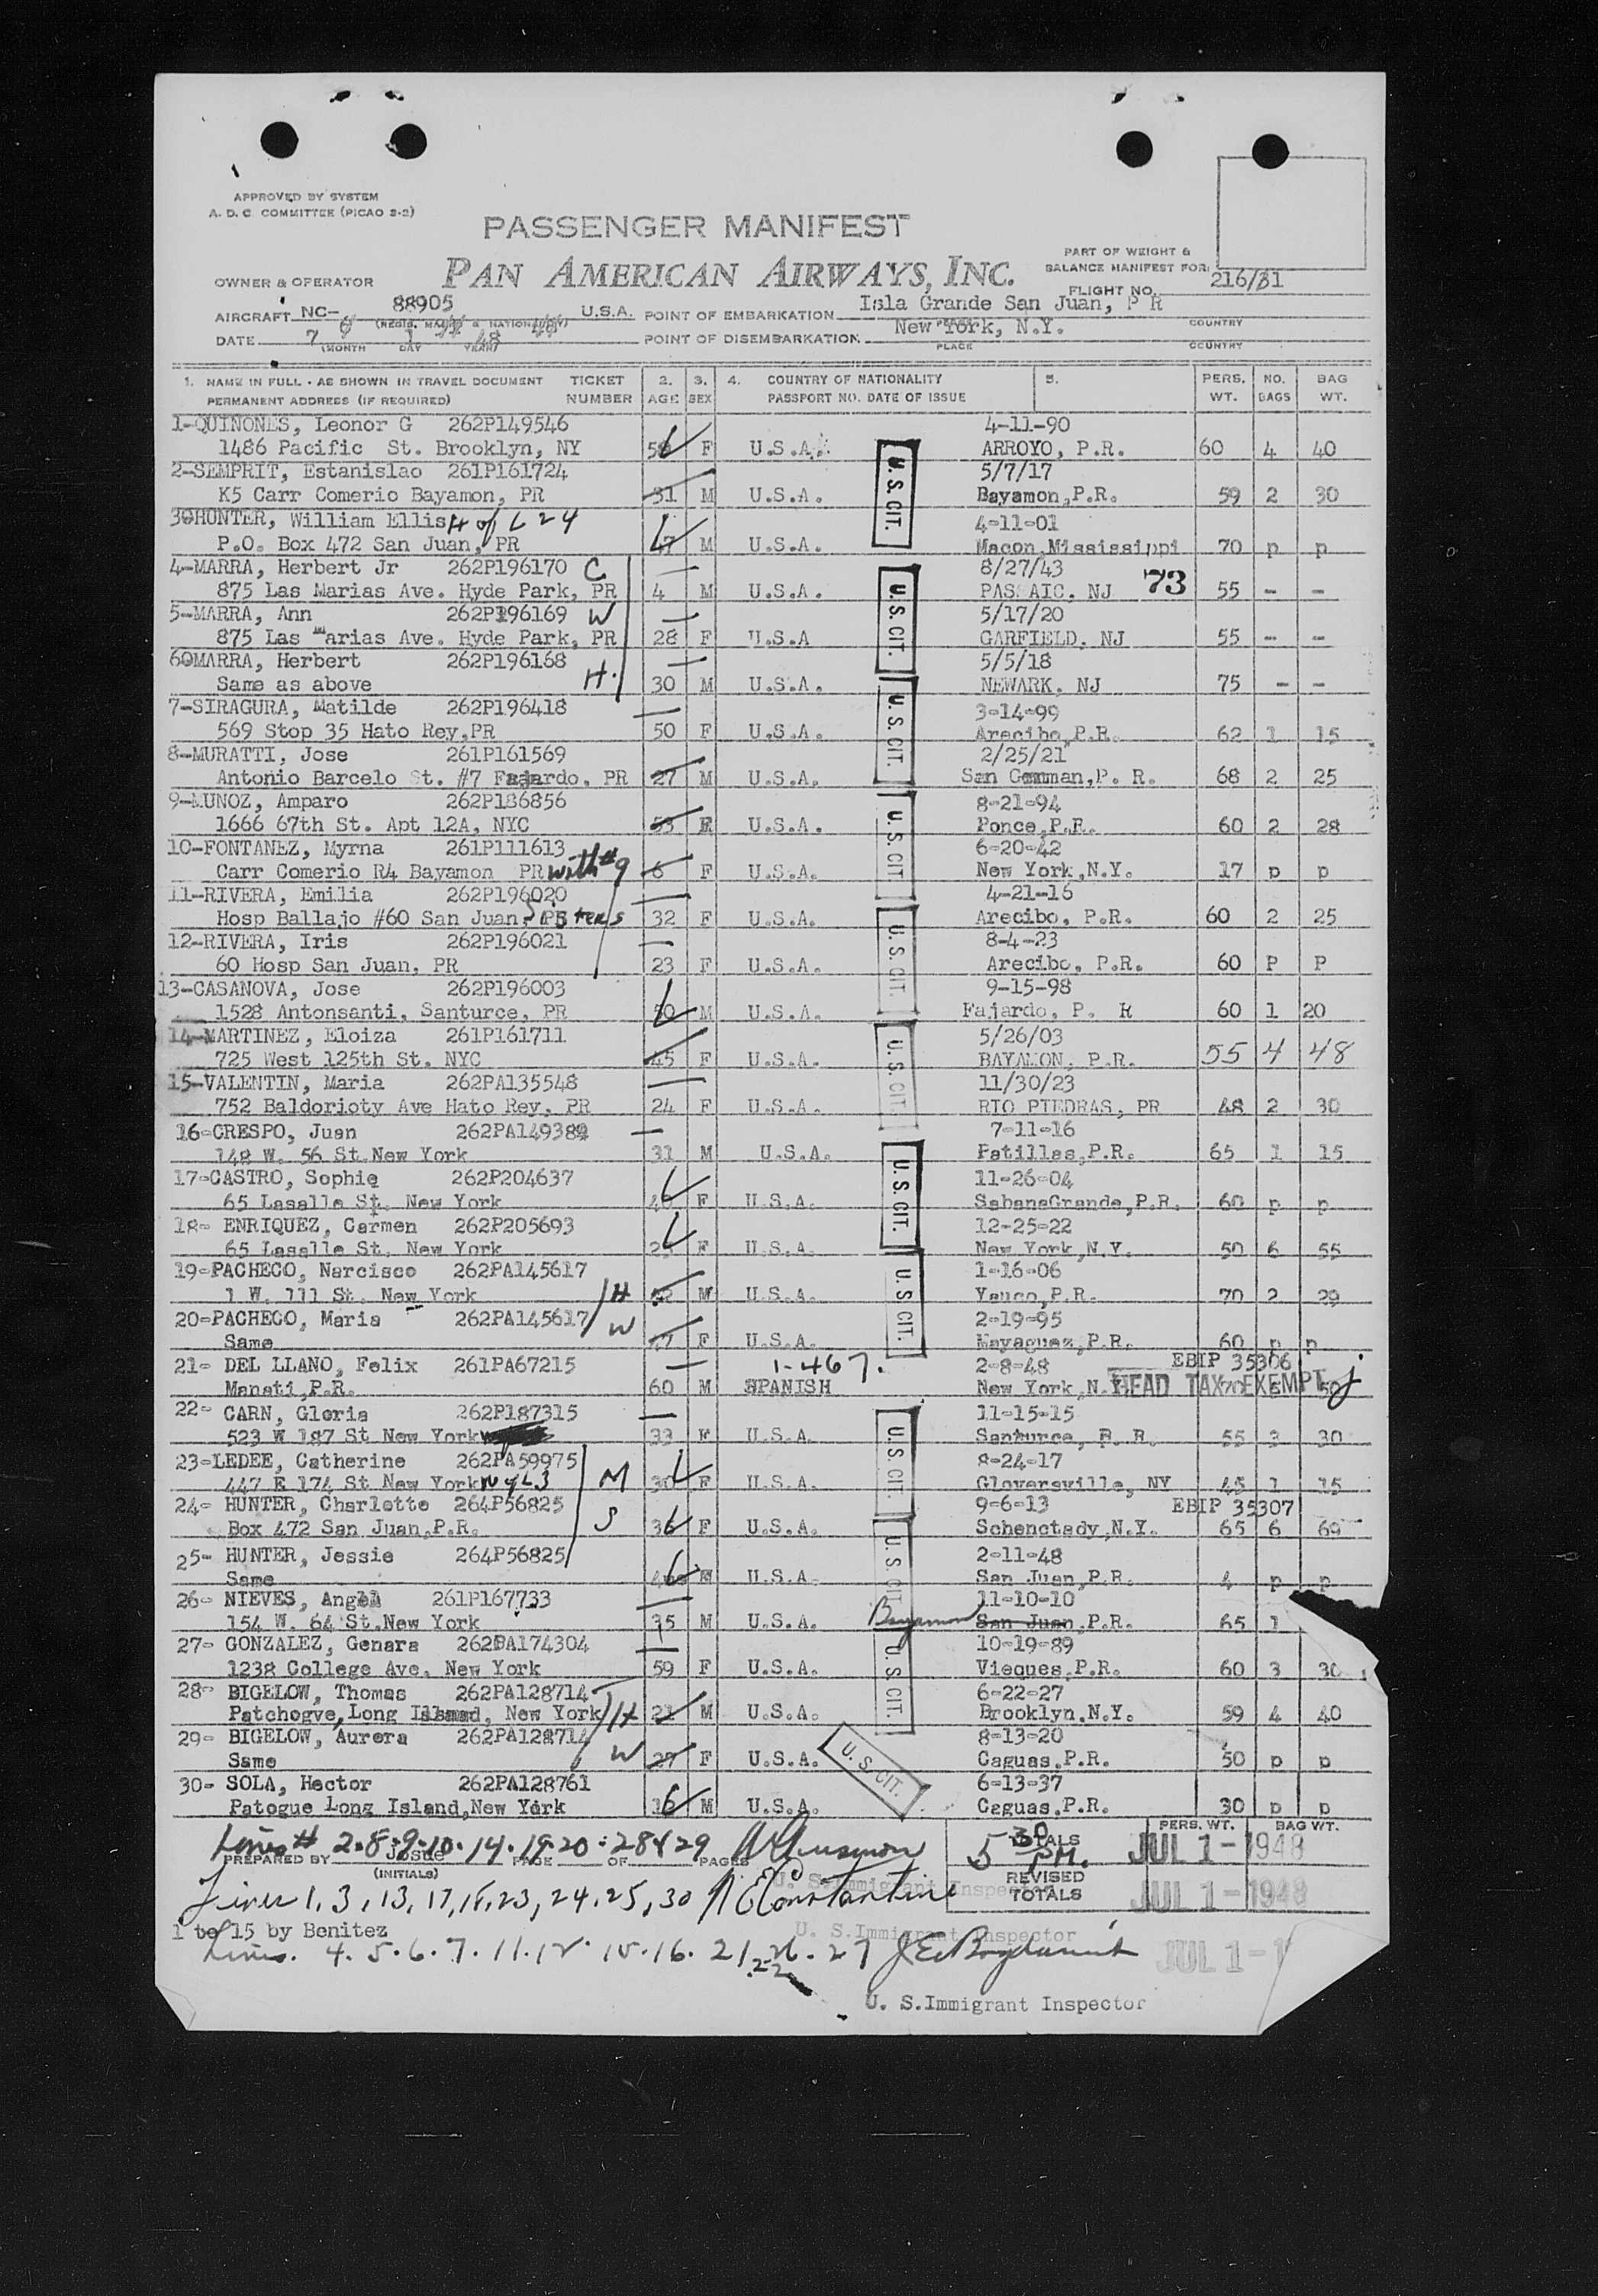 APPROVED BY SYSTEM
A. D. C. COMMITTEE (PICAO 2-2)
PASSENGER MANIFEST
PAN AMERICAN AIRWAYS, INC.
PART OF WEIGHT &
BALANCE MANIFEST FOR:
FLIGHT NO. 216/31
OWNER & OPERATOR
AIRCRAFT NC- 88905 U.S.A. POINT OF EMBARKATION Isla Grande San Juan, P R
DATE 7 1 48 POINT OF DISEMBARKATION New York, N.Y.
(MONTH DAY YEAR) PLACE COUNTRY
1. NAME IN FULL - AS SHOWN IN TRAVEL DOCUMENT TICKET 2. 3. 4. COUNTRY OF NATIONALITY 5. PERS. NO. BAG
PERMANENT ADDRESS (IF REQUIRED) NUMBER AGE SEX PASSPORT NO. DATE OF ISSUE WT. BAGS WT.
1-QUINONES, Leonor G 262P149546 4-11-90
1486 Pacific St. Brooklyn, NY F U.S.A. ARROYO, P.R. 60 4 40
2-SEMPRIT, Estanislao 261P161724 5/7/17
K5 Carr Comerio Bayamon, PR 31 M U.S.A. Bayamon,P.R. 59 2 30
30HUNTER, William Ellis H of L 24 4-11-01
P.O. Box 472 San Juan, PR 47 M U.S.A. Macon,Mississippi 70 p p
4-MARRA, Herbert Jr 262P196170 C 8/27/43
875 Las Marias Ave. Hyde Park, PR 4 M U.S.A. PASSAIC, NJ 73 55 - -
5-MARRA, Ann 262P196169 W 5/17/20
875 Las Marias Ave. Hyde Park, PR 28 F U.S.A GARFIELD, NJ 55 - -
60MARRA, Herbert 262P196168 5/5/18
Same as above H. 30 M U.S.A. NEWARK, NJ 75 - -
7-SIRAGURA, Matilde 262P196418 3-14-99
569 Stop 35 Hato Rey,PR 50 F U.S.A. Arecibo,P.R. 62 1 15
8-MURATTI, Jose 261P161569 2/25/21
Antonio Barcelo St. #7 Fajardo, PR 27 M U.S.A. San German,P. R. 68 2 25
9-MUNOZ, Amparo 262P186856 8-21-94
1666 67th St. Apt 12A, NYC 53 F U.S.A. Ponce,P.R. 60 2 28
10-FONTANEZ, Myrna 261P111613 6-20-42
Carr Comerio R4 Bayamon PR with #9 6 F U.S.A. New York,N.Y. 17 p p
11-RIVERA, Emilia 262P196020 4-21-16
Hosp Ballajo #60 San Juan, PR Sisters 32 F U.S.A. Arecibo, P.R. 60 2 25
12-RIVERA, Iris 262P196021 8-4-23
60 Hosp San Juan, PR 23 F U.S.A. Arecibo, P.R. 60 P P
13-CASANOVA, Jose 262P196003 9-15-98
1528 Antonsanti, Santurce, PR 50 M U.S.A. Fajardo, P. R 60 1 20
14-MARTINEZ, Eloiza 261P161711 5/26/03
725 West 125th St. NYC 45 F U.S.A. BAYAMON, P.R. 55 4 48
15-VALENTIN, Maria 262PA135548 11/30/23
752 Baldorioty Ave Hato Rey, PR 24 F U.S.A. RIO PIEDRAS, PR 48 2 30
16-CRESPO, Juan 262PA149389 7-11-16
148 W. 56 St.New York 31 M U.S.A. Patillas,P.R. 65 1 15
17-CASTRO, Sophie 262P204637 11-26-04
65 Lasalle St. New York F U.S.A. SabanaGrande,P.R. 60 p p
18- ENRIQUEZ, Carmen 262P205693 12-25-22
65 Lasalle St. New York F U.S.A. New York,N.Y. 50 6 55
19-PACHECO, Narcisco 262PA145617 1-16-06
1 W. 111 St. New York H M U.S.A. Yauco,P.R. 70 2 29
20-PACHECO, Maria 262PA145617 W 2-19-95
Same F U.S.A. Mayaguez,P.R. 60 p p
21- DEL LLANO, Felix 261PA67215 1-467. 2-8-48 EBIP 35306
Manati,P.R. 60 M SPANISH New York,N.Y. HEAD TAX EXEMPT 50
22- CARN, Gloria 262P187315 11-15-15
523 W 187 St New York 33 F U.S.A. Santurce, P.R. 55 3 30
23-LEDEE, Catherine 262PA59975 M 8-24-17
447 E 174 St New York 30 F U.S.A. Gloversville, NY 45 1 15
24- HUNTER, Charlotte 264P56825 S 9-6-13 EBIP 35307
Box 472 San Juan,P.R. F U.S.A. Schenctady,N.Y. 65 6 69
25- HUNTER, Jessie 264P56825 2-11-48
Same U.S.A. San Juan,P.R. 4 p p
26- NIEVES, Angel 261P167733 11-10-10
154 W. 64 St.New York 35 M U.S.A. Bayamon San Juan,P.R. 65 1
27- GONZALEZ, Genara 262PA174304 10-19-89
1238 College Ave. New York 59 F U.S.A. Vieques,P.R. 60 3 30
28- BIGELOW, Thomas 262PA128714 6-22-27
Patchogve,Long Island, New York H 21 M U.S.A. Brooklyn.N.Y. 59 4 40
29- BIGELOW, Aurora 262PA128714 8-13-20
Same W 27 F U.S.A. Caguas,P.R. 50 p p
30- SOLA, Hector 262PA128761 6-13-37
Patogue Long Island,New York M U.S.A. Caguas,P.R. 30 p p
U. S. CIT.
U. S. CIT.
U. S. CIT.
U. S. CIT.
U. S. CIT.
U. S. CIT.
U. S. CIT.
U. S. CIT.
U. S. CIT.
U. S. CIT.
U. S. CIT.
U. S. CIT.
Lines # 2-8-9-10-14-19-20-28&29
PREPARED BY Josue PAGE OF PAGES
(INITIALS)
5 30 PM.
TOTALS
PERS. WT. BAG WT.
JUL 1-1948
U. S.Immigrant Inspector
REVISED
TOTALS
JUL 1-1948
Lines 1, 3, 13, 17, 18, 23, 24, 25, 30 Constantine
1 to 15 by Benitez
U. S.Immigrant Inspector
Lines. 4. 5. 6. 7. 11. 12. 15. 16. 21. 22. 26. 27
JUL 1-1
U. S.Immigrant Inspector